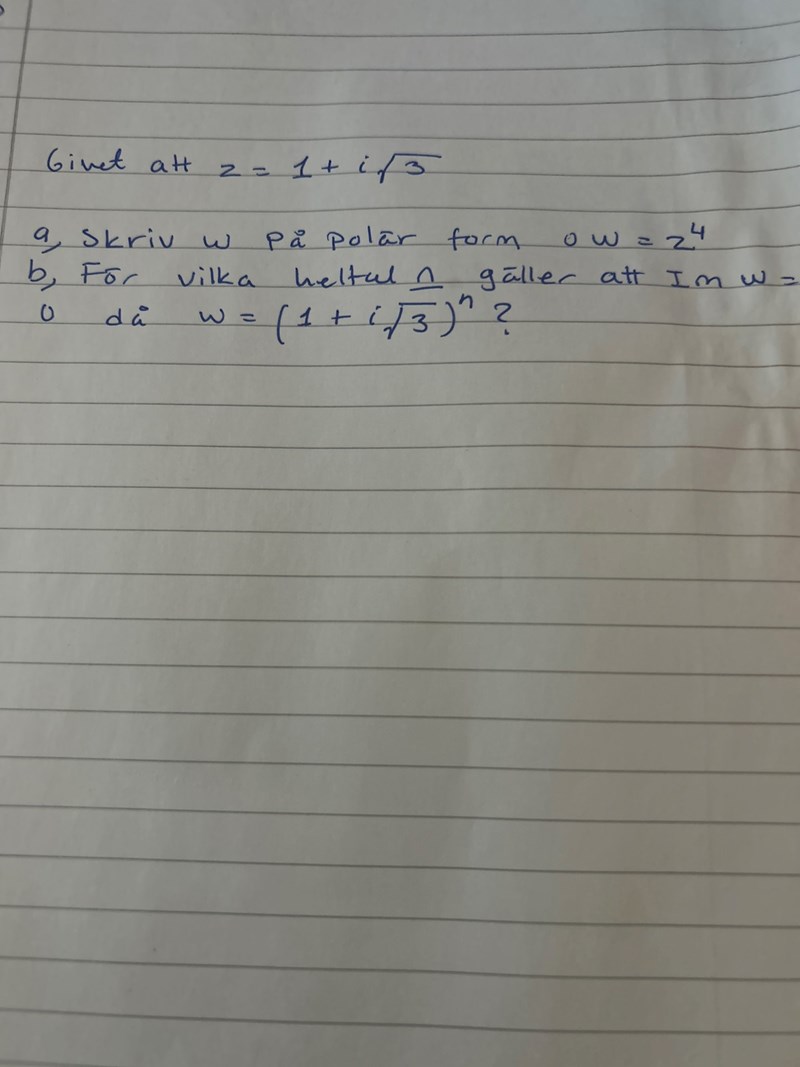 Givet att z = 1 + i√3
a, Skriv w på polär form o w = z⁴
b, För vilka heltal n gäller att Im w =
0 då w = (1 + i√3)ⁿ ?